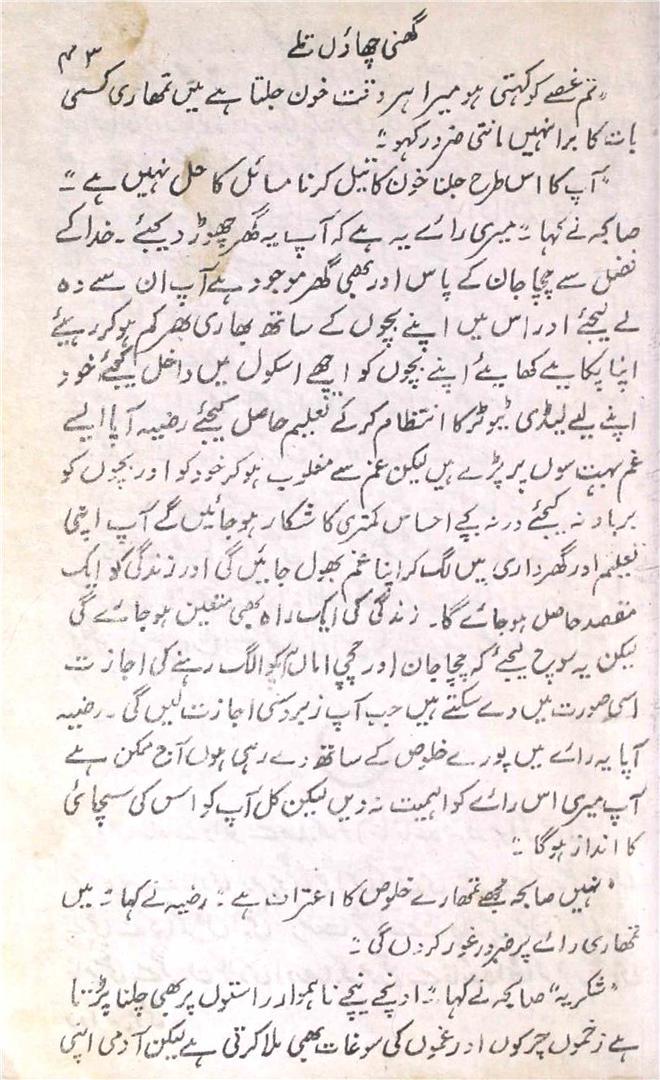 گھنی چھاؤں تلے
۴۳
”تم غصے کو کہتی ہو میرا ہر وقت خون جلتا ہے میں تمھاری کسی
بات کا برا نہیں مانتی ضرور کہو“
”آپ کا اس طرح جلنا خون کا تیل کرنا مسائل کا حل نہیں ہے“
صابحہ نے کہا ”میری رائے یہ ہے کہ آپ یہ گھر چھوڑ دیجیئے۔ خدا کے
فضل سے چچا جان کے پاس اور بھی گھر موجود ہے آپ ان سے وہ
لے لیجئے اور اس میں اپنے بچوں کے ساتھ بھاری بھر کم ہو کر رہیئے
اپنا پکایئے کھایئے اپنے بچوں کو اچھے اسکول میں داخل کیجئے خود
اپنے لیے لیڈی ٹیوٹر کا انتظام کر کے تعلیم حاصل کیجئے رضیہ آپا ایسے
غم بہت سوں پر پڑے ہیں لیکن غم سے مغلوب ہو کر خود کو اور بچوں کو
برباد نہ کیجئے ورنہ بچے احساس کمتری کا شکار ہو جائیں گے آپ اپنی
تعلیم اور گھرداری میں لگ کر اپنا غم بھول جائیں گی اور زندگی کو ایک
مقصد حاصل ہو جائے گا۔ زندگی کی ایک راہ بھی متعین ہو جائے گی
لیکن یہ سوچ لیجئے کہ چچا جان اور چچی اماں آپکو الگ رہنے کی اجازت
اسی صورت میں دے سکتے ہیں جب آپ زبردستی اجازت لیں گی۔ رضیہ
آپا یہ رائے میں پورے خلوص کے ساتھ دے رہی ہوں آج ممکن ہے
آپ میری اس رائے کو اہمیت نہ دیں لیکن کل آپ کو اس کی سچائی
کا انداز ہوگا“
”نہیں صابحہ مجھے تمھارے خلوص کا اعتراف ہے“ رضیہ نے کہا ”میں
تمھاری رائے پر ضرور غور کروں گی“
”شکریہ“ صابحہ نے کہا ”اونچے نیچے ناہموار راستوں پر بھی چلنا پڑتا
ہے زخموں چرکوں اور غموں کی سوغات بھی ملا کرتی ہے لیکن آدمی اپنی